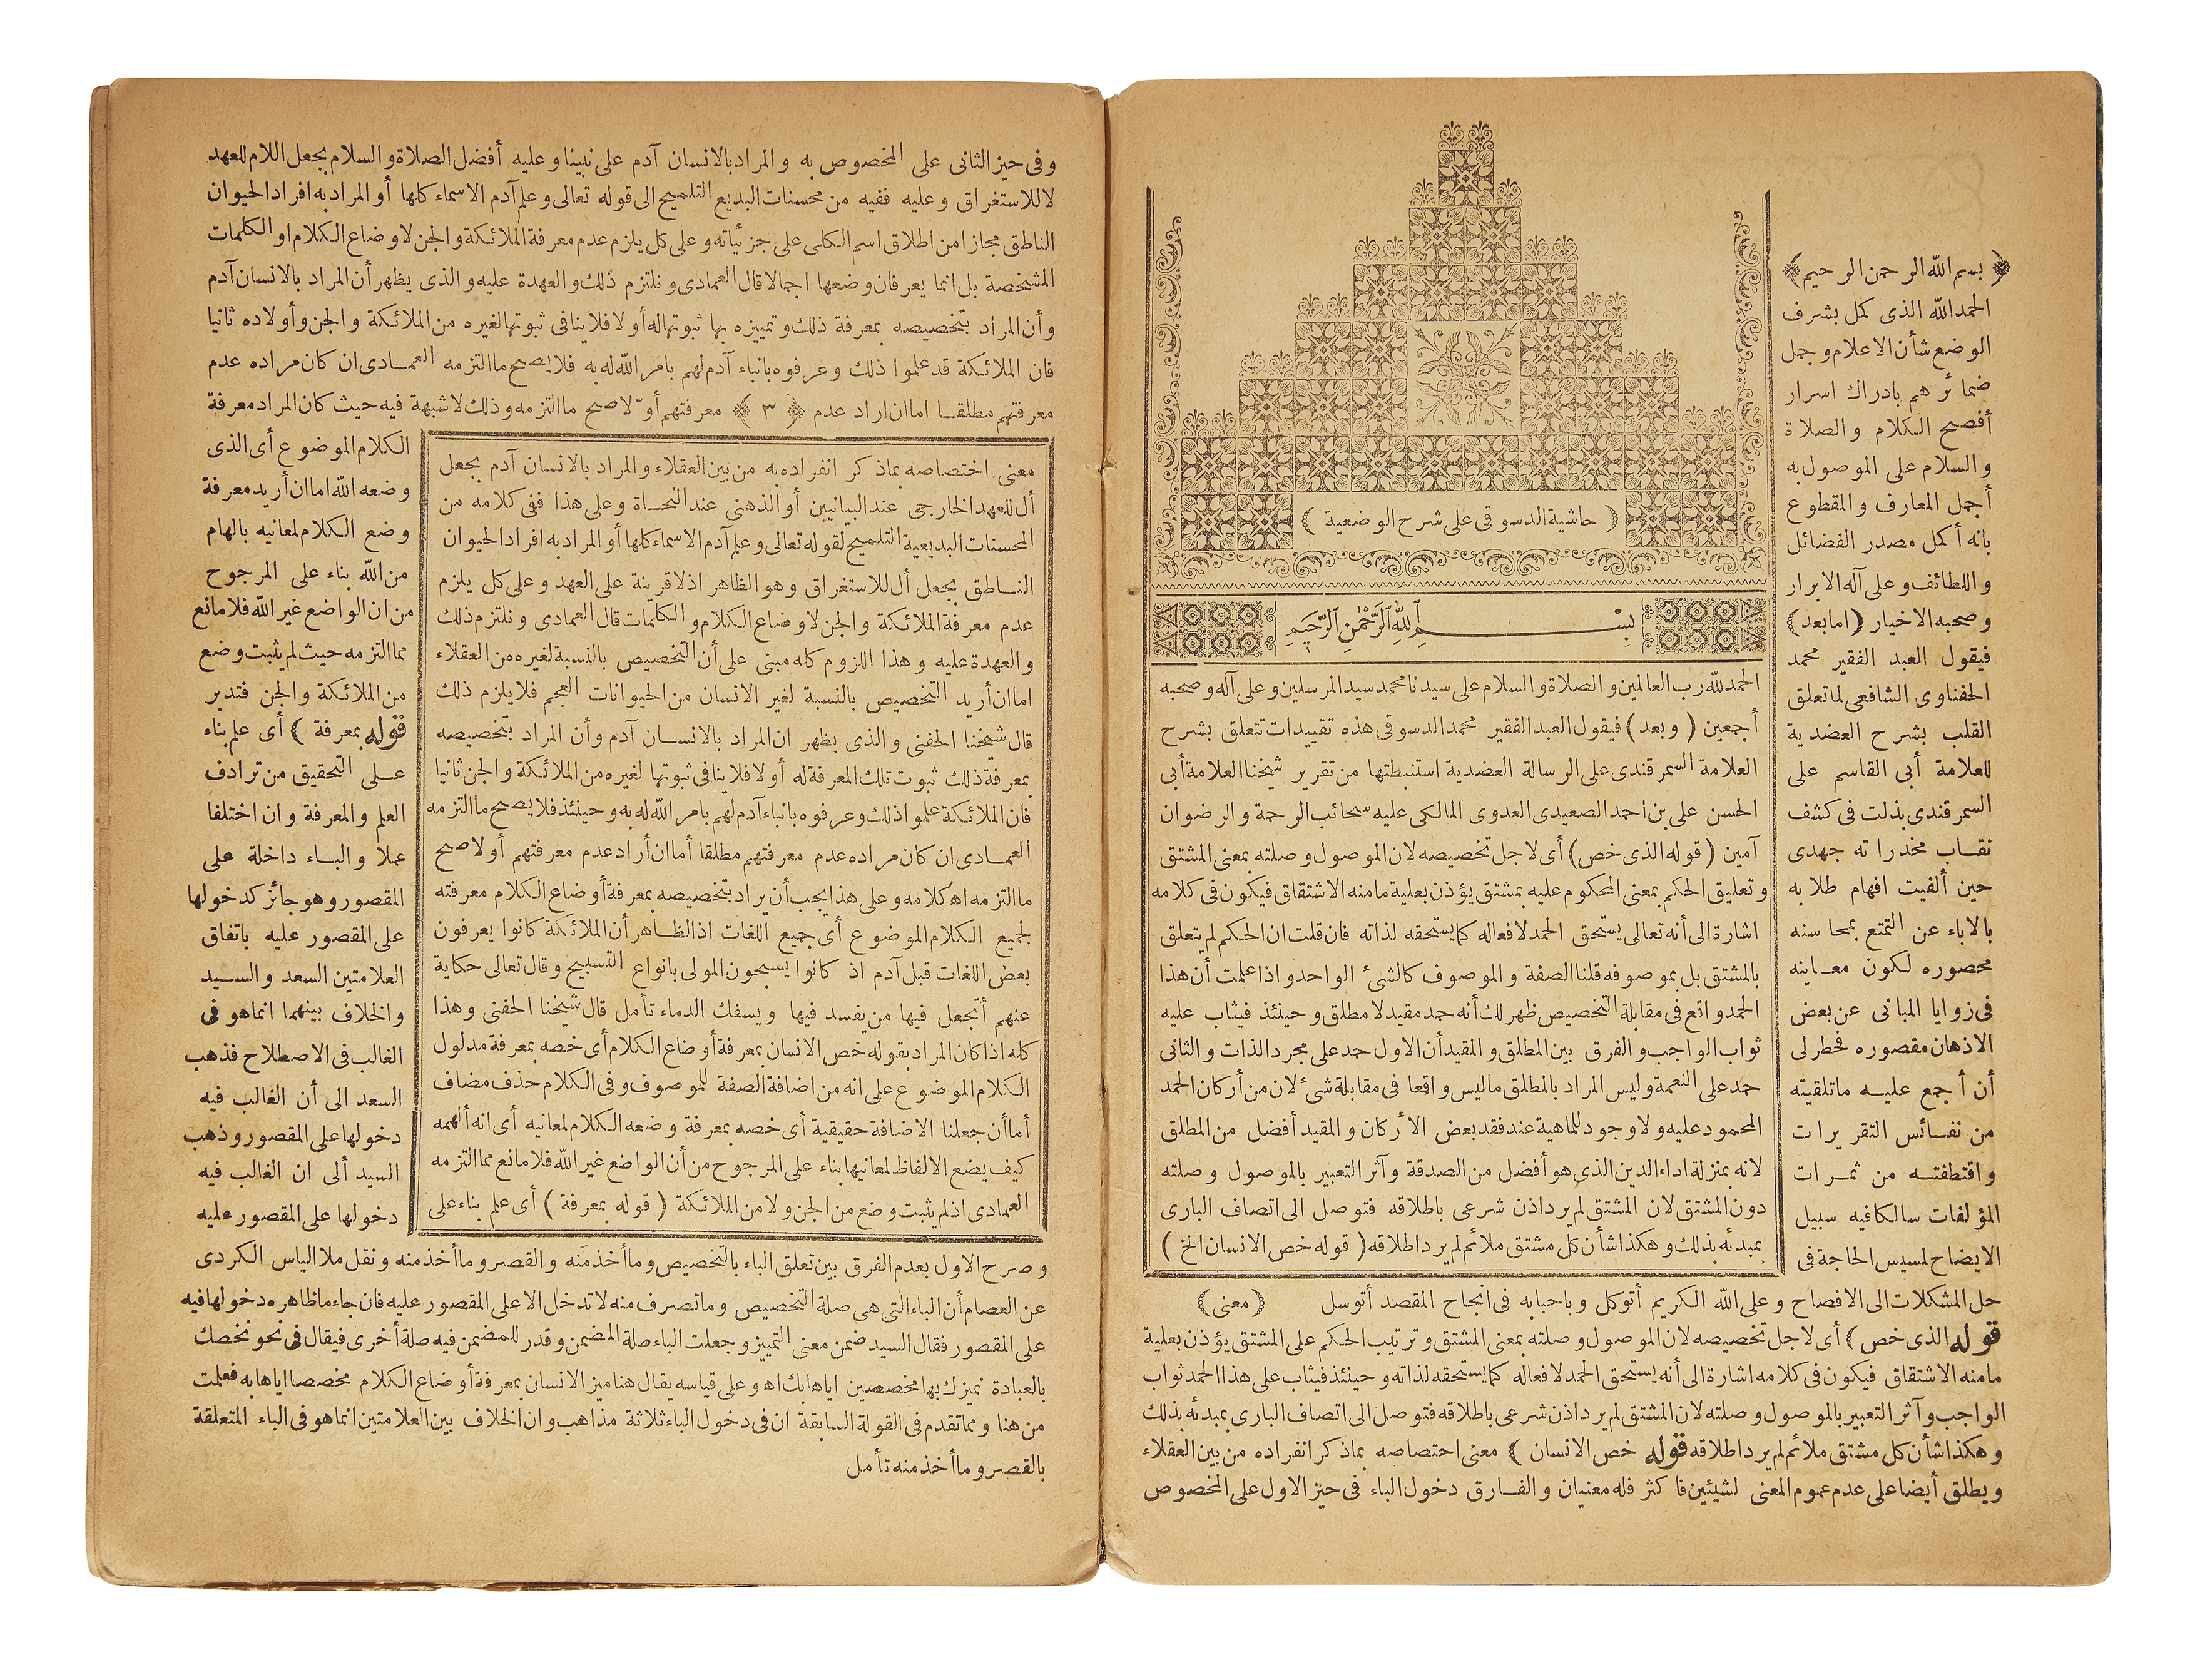 ﴿ بسم الله الرحمن الرحيم ﴾
الحمد لله الذى كمل بشرف
الوضع شأن الاعلام وجمل
ضمائرهم بادراك اسرار
أفصح الكلام والصلاة
والسلام على الموصول به
أجمل المعارف والمقطوع
بانه أكمل مصدر الفضائل
واللطائف وعلى آله الابرار
وصحبه الاخيار ﴿اما بعد﴾
فيقول العبد الفقير محمد
الحفناوى الشافعى لما تعلق
القلب بشرح العضدية
للعلامة أبى القاسم على
السمرقندى بذلت فى كشف
نقاب مخدراته جهدى
حين ألفيت افهام طلابه
بالاباء عن التمتع بمحاسنه
محصوره لكون معاينه
فى زوايا المبانى عن بعض
الاذهان مقصوره فخطرلى
أن أجمع عليه ماتلقيته
من نفائس التقريرات
واقتطفته من ثمرات
المؤلفات سالكا فيه سبيل
الايضاح لمسيس الحاجة فى
حل المشكلات الى الافصاح وعلى الله الكريم أتوكل وباحبابه فى انجاح المقصد أتوسل
﴿قوله الذى خص﴾ أى لاجل تخصيصه لان الموصول وصلته بمعنى المشتق وترتيب الحكم على المشتق يؤذن بعلية
مامنه الاشتقاق فيكون فى كلامه اشارة الى أنه يستحق الحمد لافعاله كما يستحقه لذاته وحينئذ فيثاب على هذا الحمد ثواب
الواجب وآثر التعبير بالموصول وصلته لان المشتق لم يرد اذن شرعى باطلاقه فتوصل الى اتصاف البارى بمبدئه بذلك
وهكذا شأن كل مشتق ملائم لم يرد اطلاقه ﴿قوله خص الانسان﴾ معنى اختصاصه بماذكر انفراده من بين العقلاء
ويطلق أيضا على عدم عموم المعنى لشيئين فاكثر فله معنيان والفارق دخول الباء فى حيز الاول على المخصوص
﴿ حاشية الدسوقى على شرح الوضعية ﴾
بسم الله الرحمن الرحيم
الحمد لله رب العالمين والصلاة والسلام على سيدنا محمد سيد المرسلين وعلى آله وصحبه
أجمعين (وبعد) فيقول العبد الفقير محمد الدسوقى هذه تقييدات تتعلق بشرح
العلامة السمرقندى على الرسالة العضدية استنبطتها من تقرير شيخنا العلامة أبى
الحسن على بن احمد الصعيدى العدوى المالكى عليه سحائب الرحمة والرضوان
آمين (قوله الذى خص) أى لاجل تخصيصه لان الموصول وصلته بمعنى المشتق
وتعليق الحكم بمعنى المحكوم عليه بمشتق يؤذن بعلية مامنه الاشتقاق فيكون فى كلامه
اشارة الى أنه تعالى يستحق الحمد لافعاله كما يستحقه لذاته فان قلت ان الحكم لم يتعلق
بالمشتق بل بموصوفه قلنا الصفة والموصوف كالشئ الواحد واذا علمت أن هذا
الحمد واقع فى مقابلة التخصيص ظهر لك أنه حمد مقيد لامطلق وحينئذ فيثاب عليه
ثواب الواجب والفرق بين المطلق والمقيد أن الاول حمد على مجرد الذات والثانى
حمد على النعمة وليس المراد بالمطلق ماليس واقعا فى مقابلة شئ لان من أركان الحمد
المحمود عليه ولا وجود للماهية عند فقد بعض الأركان والمقيد أفضل من المطلق
لانه بمنزلة اداء الدين الذى هو أفضل من الصدقة وآثر التعبير بالموصول وصلته
دون المشتق لان المشتق لم يرد اذن شرعى باطلاقه فتوصل الى اتصاف البارى
بمبدئه بذلك وهكذا شأن كل مشتق ملائم لم يرد اطلاقه (قوله خص الانسان الخ)
﴿معنى﴾
وفى حيز الثانى على المخصوص به والمراد بالانسان آدم على نبينا وعليه أفضل الصلاة والسلام بجعل اللام للعهد
لا للاستغراق وعليه ففيه من محسنات البديع التلميح الى قوله تعالى وعلم آدم الاسماء كلها أو المراد به افراد الحيوان
الناطق مجازا من اطلاق اسم الكلى على جزئياته وعلى كل يلزم عدم معرفة الملائكة والجن لاوضاع الكلام او الكلمات
المشخصة بل انما يعرفان وضعها اجمالا قال العمادى ونلتزم ذلك والعهدة عليه والذى يظهر أن المراد بالانسان آدم
وأن المراد بتخصيصه بمعرفة ذلك وتمييزه بها ثبوتها له أولا فلا ينافى ثبوتها لغيره من الملائكة والجن وأولاده ثانيا
فان الملائكة قد علموا ذلك وعرفوه بانباء آدم لهم بامر الله له به فلا يصح ما التزمه العمادى ان كان مراده عدم
معرفتهم مطلقا اما ان اراد عدم ﴿ ٣ ﴾ معرفتهم أولا صح ما التزمه وذلك لاشبهة فيه حيث كان المراد معرفة
الكلام الموضوع أى الذى
وضعه الله اما ان أريد معرفة
وضع الكلام لمعانيه بالهام
من الله بناء على المرجوح
من ان الواضع غير الله فلا مانع
مما التزمه حيث لم يثبت وضع
من الملائكة والجن فتدبر
﴿قوله بمعرفة﴾ أى علم بناء
على التحقيق من ترادف
العلم والمعرفة وان اختلفا
عملا والباء داخلة على
المقصور وهو جائز كدخولها
على المقصور عليه باتفاق
العلامتين السعد والسيد
والخلاف بينهما انما هو فى
الغالب فى الاصطلاح فذهب
السعد الى أن الغالب فيه
دخولها على المقصور وذهب
السيد ألى ان الغالب فيه
دخولها على المقصور عليه
معنى اختصاصه بماذكر انفراده به من بين العقلاء والمراد بالانسان آدم بجعل
أل للعهد الخارجى عند البيانيين أو الذهنى عند النحاة وعلى هذا ففى كلامه من
المحسنات البديعية التلميح لقوله تعالى وعلم آدم الاسماء كلها أو المراد به افراد الحيوان
الناطق بجعل أل للاستغراق وهو الظاهر اذ لاقرينة على العهد وعلى كل يلزم
عدم معرفة الملائكة والجن لاوضاع الكلام والكلمات قال العمادى ونلتزم ذلك
والعهدة عليه وهذا اللزوم كله مبنى على أن التخصيص بالنسبة لغيره من العقلاء
اما ان أريد التخصيص بالنسبة لغير الانسان من الحيوانات العجم فلا يلزم ذلك
قال شيخنا الحفنى والذى يظهر ان المراد بالانسان آدم وأن المراد بتخصيصه
بمعرفة ذلك ثبوت تلك المعرفة له أولا فلا ينافى ثبوتها لغيره من الملائكة والجن ثانيا
فان الملائكة علموا ذلك وعرفوه بانباء آدم لهم بامر الله له به وحينئذ فلا يصح ما التزمه
العمادى ان كان مراده عدم معرفتهم مطلقا أما أن أراد عدم معرفتهم أولا صح
ما التزمه اه كلامه وعلى هذا يجب أن يراد بتخصيصه بمعرفة أوضاع الكلام معرفته
لجميع الكلام الموضوع أى جميع اللغات اذ الظاهر أن الملائكة كانوا يعرفون
بعض اللغات قبل آدم اذ كانوا يسبحون المولى بانواع التسبيح وقال تعالى حكاية
عنهم أتجعل فيها من يفسد فيها ويسفك الدماء تأمل قال شيخنا الحفنى وهذا
كله اذا كان المراد بقوله خص الانسان بمعرفة أوضاع الكلام أى خصه بمعرفة مدلول
الكلام الموضوع على انه من اضافة الصفة للموصوف وفى الكلام حذف مضاف
أما أن جعلنا الاضافة حقيقية أى خصه بمعرفة وضعه الكلام لمعانيه أى انه ألهمه
كيف يضع الالفاظ لمعانيها بناء على المرجوح من أن الواضع غير الله فلا مانع مما التزمه
العمادى اذ لم يثبت وضع من الجن ولا من الملائكة (قوله بمعرفة) أى علم بناء على
وصرح الاول بعدم الفرق بين تعلق الباء بالتخصيص وما أخذ منه والقصر وما أخذ منه ونقل ملا الياس الكردى
عن العصام أن الباء التى هى صلة التخصيص وما تصرف منه لا تدخل الا على المقصور عليه فان جاء ماظاهره دخولها فيه
على المقصور فقال السيد ضمن معنى التمييز وجعلت الباء صلة المضمن وقدر للمضمن فيه صلة أخرى فيقال فى نحو نخصك
بالعبادة نميزك بها مخصصين اياها بك اه وعلى قياسه يقال هنا ميز الانسان بمعرفة أوضاع الكلام مخصصا اياها به فعلمت
من هنا ومما تقدم فى القولة السابقة ان فى دخول الباء ثلاثة مذاهب وان الخلاف بين العلامتين انما هو فى الباء المتعلقة
بالقصر وما أخذ منه تأمل